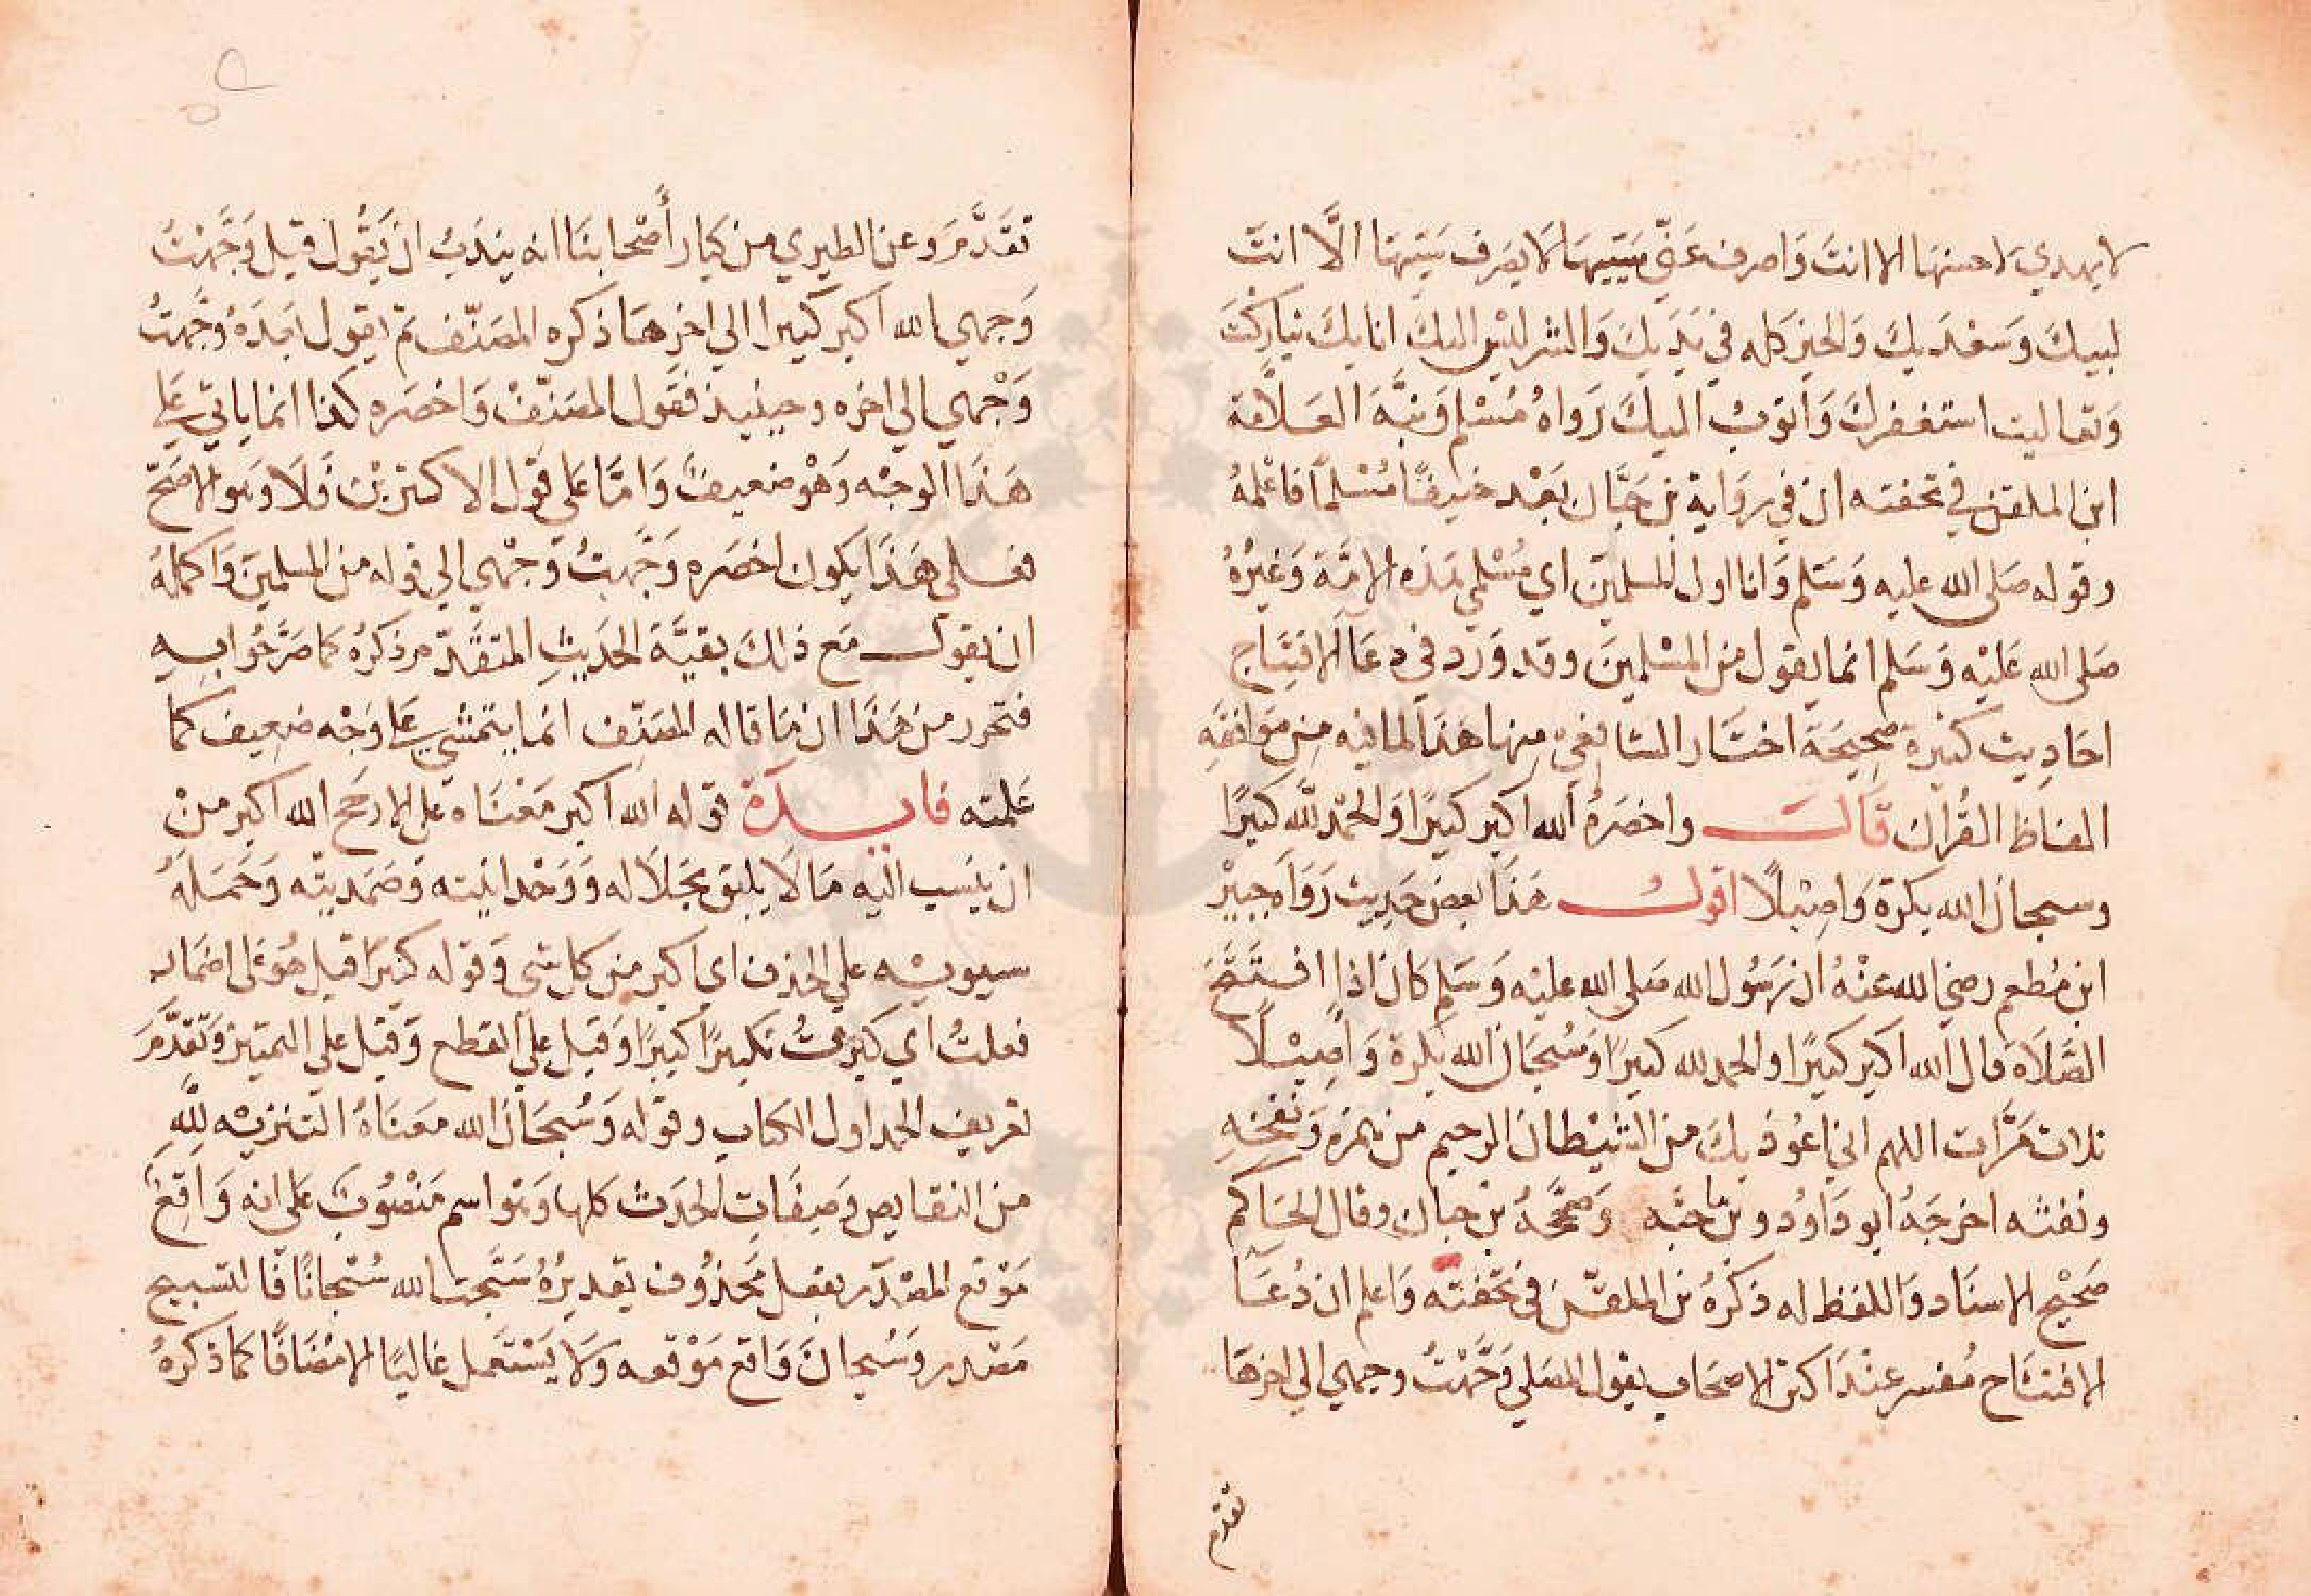 لا يهدي لاحسنها الا انتَ وَاصرف عَنّي سَيّيهَا لَا يصَرف سَيّيهَا الَّا انتَ
لبيكَ وَسَعْدَيكَ وَالخير كله في يَدَيكَ وَالشر ليْسَ اليكَ انا بِكَ تباركْتَ
وَتعاليت استغفركَ وَاَتوبُ اليكَ رَوَاهُ مُسْلم وَنبَّهَ العَلَّامَة
ابن الملقن في تحفته ان في روَاية بن حَبَّان بَعْد حنيفًا مُسْلمًا فاعْلمهُ
وقوله صَلى الله عليه وَسَلم وَانا اول المسلمِينَ اي مُسْلمي هَذه الامَّة وَغيرُهُ
صَلى الله عَليْه وَسَلم انما يقول من المسْلمِينَ وقد وَرَد في دعَآ الافتِتَاح
احَادِيث كثيرة صَحِيحَة اختَار الشافعيّ منها هَذا لما فيه مِن مَوَافقَهِ
الفاظ القُرآن قَالَ وَاخصَرهُ الله اكبر كبيرًا وَالحَمْد للهِ كثيرًا
وسبحان الله بكرة وَاصِيْلًا اقول هَذا بعض حَدِيث رَوَاه جبيْر
ابن مُطعم رضي الله عَنْهُ ان رَسُول الله صَلى الله عليْه وَسَلم كان اذا افتتَحَ
الصَّلاة قال الله اكبر كبيرًا والحمد لله كثيرًا وَسُبحَان الله بكرة وَاَصِيْلًا
ثلاث مَرَّات اللهم اني اعُوذ بكَ من الشيْطان الرجيم من همزه وَنفخه
ونفثه اخرجَهُ ابو دَاوُد وبن ماجَه وَصَحَّحَهُ بن حبان وقال الحَاكم
صَحيْح الاسنَاد وَاللفظ له ذكَرهُ بن الملقّن في تحفتَه وَاعلم ان دُعَآ
الافتتَاح مُفسر عنْدَ اكثر الاصحَاب بقول المصَلي وَجَّهْتُ وجهي الي اخرهَا
تقدم
تقَدَّمَ وَعن الطبري من كبار أَصْحابنَا انه يندَبُ ان يَقُول قبل وَجَّهْتُ
وَجهي الله اكبر كبيرا الي اخرهَا ذكره المصَنّف ثم يقول بَعْدَهُ وَجَّهتُ
وَجْهي الي اخره وحينيذ فقول المصَنّفْ وَاخصَره كذا انما ياتي عَلي
هَذا الوجْه وَهْو ضعيفٌ وَامَّا عَلى قَول الاكثريْن فَلَا وَهو الاصَحّ
فعلى هَذا يكون اخصَره وَجَّهتُ وَجْهي الي قوله من المسلمِينَ وَاكملهُ
ان يقول مَع ذلكَ بقيَّة الحَديثِ المتقَدّم ذكرُهُ كما صَرَّحُوا بِهِ
فتحرر من هَذا ان مَا قاله المصَنّف انما يتمشي عَلي وَجْه ضعِيف كما
عَلمته فايدَة قوله الله اكبر مَعْنَاه عَلى الارجَح الله اكبر منْ
ان ينسَب اليْه مَا لَا يليق بجَلاله وَوَحْدانيته وَصَمَديّته وَحَمَلهُ
سيبويْه علي الحذف اي اكبر من كل شي وَقوله كبيرًا قيل هُوَ عَلى اضمَار
فعلتُ اي كبَرتُ تكبيرًا كبيرًا وَقيل عَلى القطع وَقيل علي التمييز وَتَقَدَّمَ
تعريف الحمد اول الكتاب وقوله وَسُبحَان الله مَعنَاهُ التنزيْه للّهِ
من النقايص وَصِفَاتِ الحَدَث كلها وَهو اسم مَنْصُوبٌ عَلى انه وَاقِعٌ
مَوْقع المصْدَر بفعل مَحذُوف تقديرُهُ سَبَّحتُ الله سُبْحانًا فالتسبيح
مَصْدر وَسُبحانَ وَاقع مَوْقعه وَلا يَسْتَعمل غالبًا الا مُضَافًا كما ذكرهُ